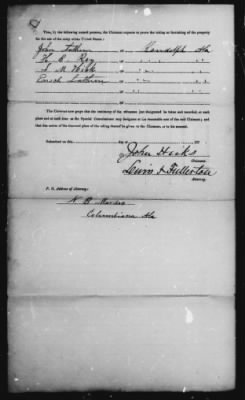 That, by the following named persons, the Claimant expects to prove the taking or furnishing of the property
for the use of the army within United States:
John Lathum of Randolph Ala
H. C. Ray of " "
J. M. Hicks of " "
Enoch Lathum of " "
The Claimant now prays that the testimony of the witnesses just designated be taken and recorded, at such
place and at such time as the Special Commissioner may designate at the reasonable cost of the said Claimant; and
that due notice of the time and place of the taking thereof be given to the Claimant, or to his counsel.
Submitted on this day of 187
John Hicks
Claimant.
Lewis & Fullerton
Attorney.
P. O. Address of Attorney:
N. B. Mardis
Columbiana Ala